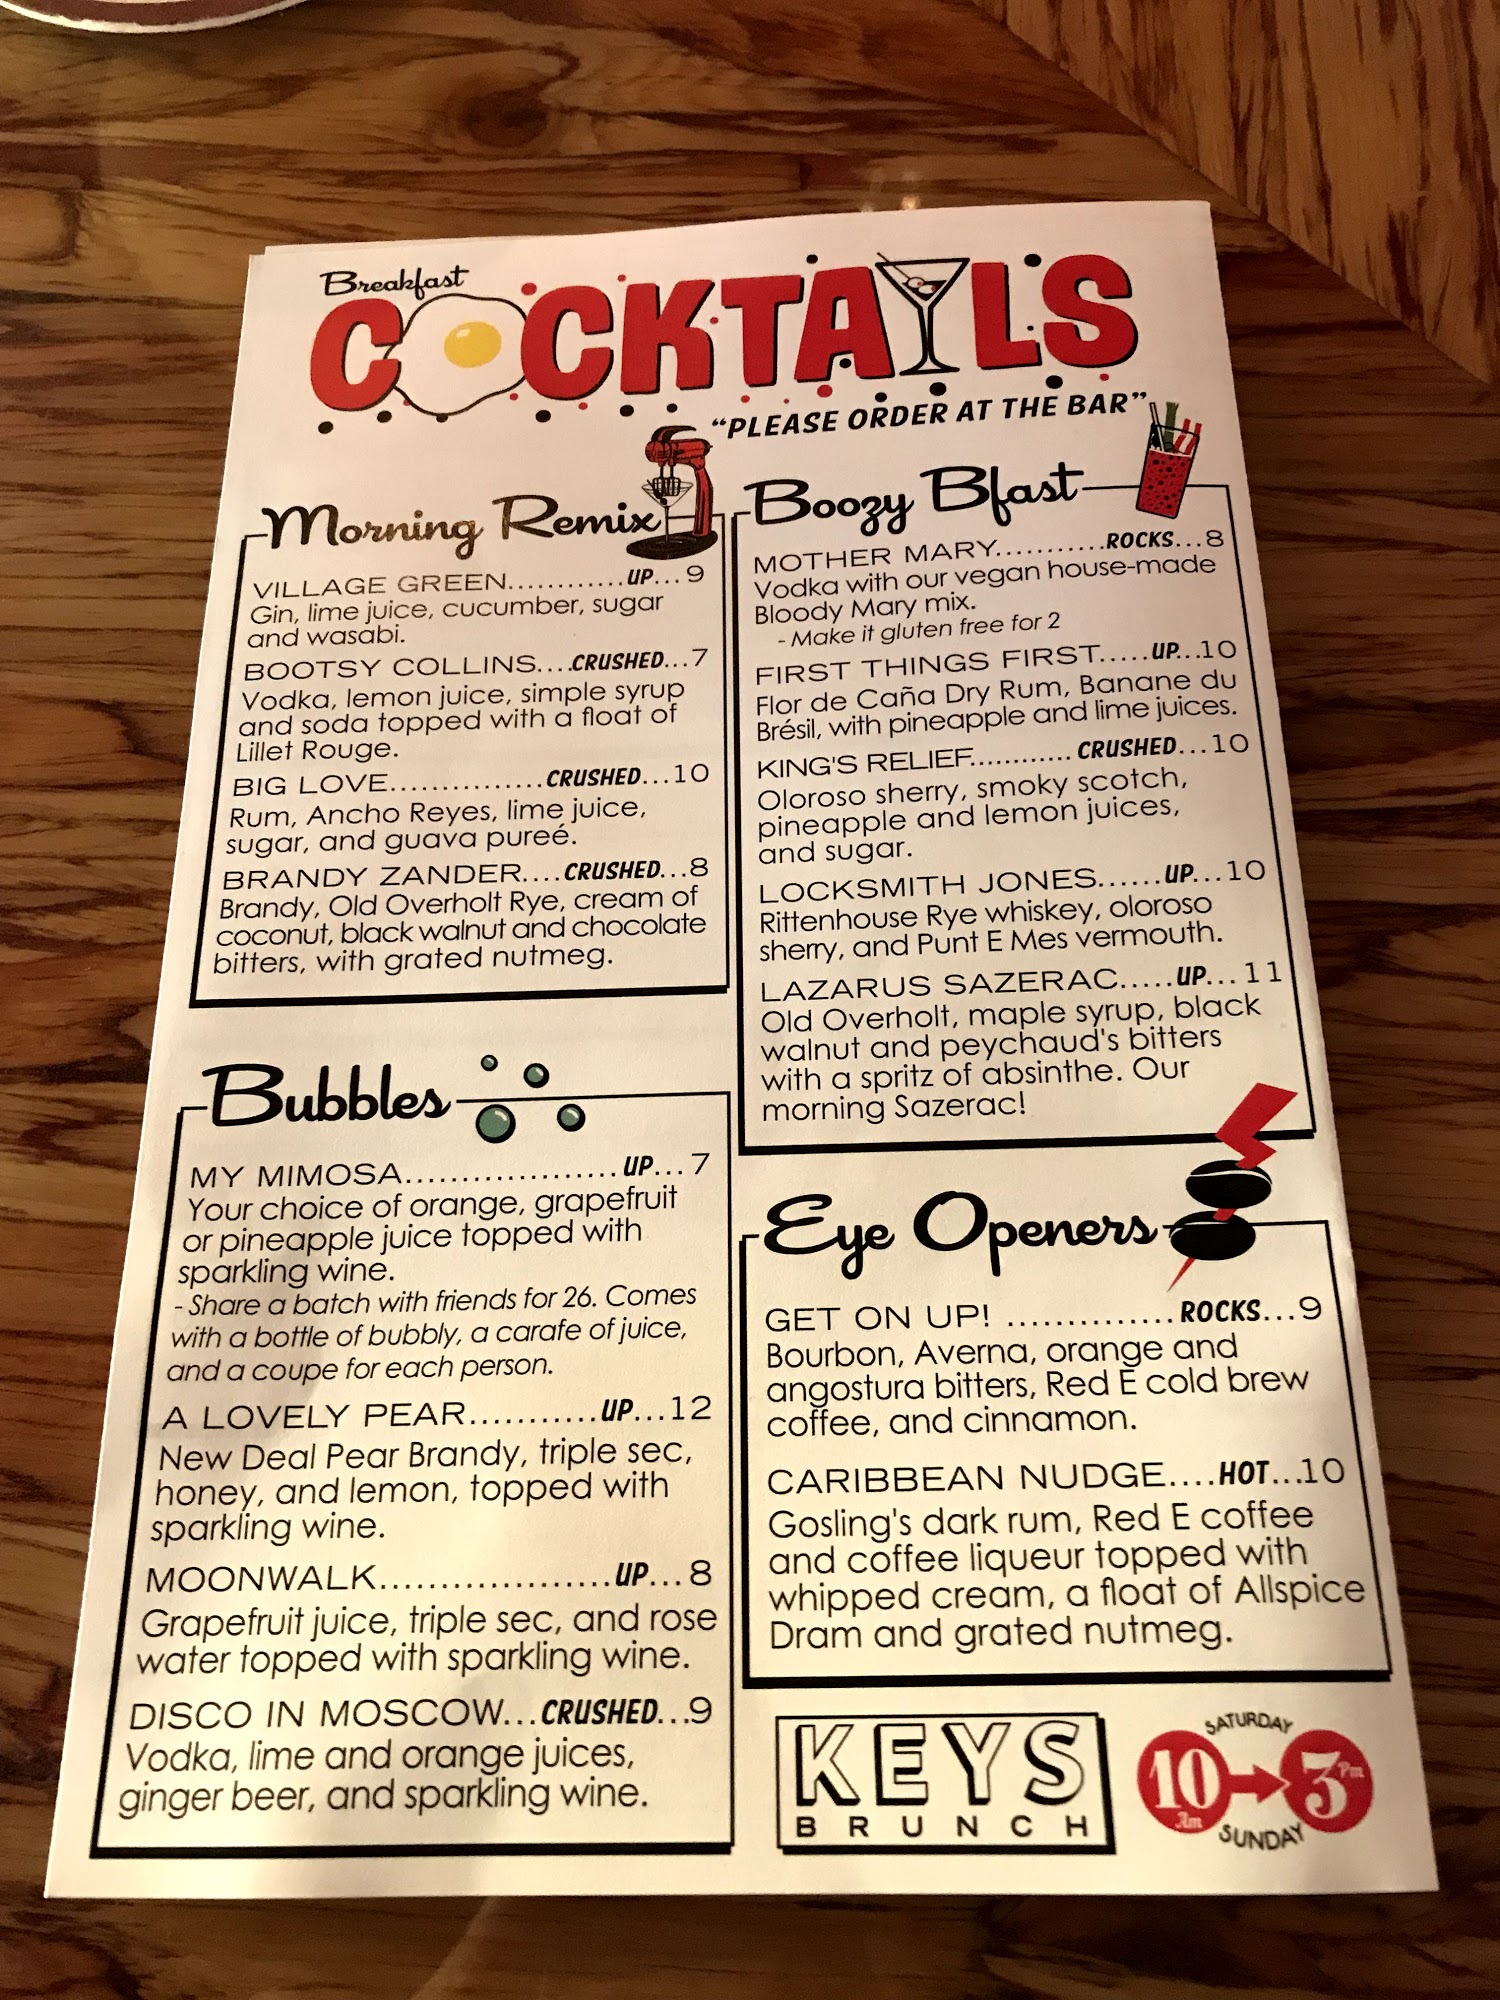 Breakfast
COCKTAILS
"PLEASE ORDER AT THE BAR"
Morning Remix
VILLAGE GREEN............UP...9
Gin, lime juice, cucumber, sugar
and wasabi.
BOOTSY COLLINS....CRUSHED...7
Vodka, lemon juice, simple syrup
and soda topped with a float of
Lillet Rouge.
BIG LOVE...............CRUSHED...10
Rum, Ancho Reyes, lime juice,
sugar, and guava pureé.
BRANDY ZANDER....CRUSHED...8
Brandy, Old Overholt Rye, cream of
coconut, black walnut and chocolate
bitters, with grated nutmeg.
Bubbles
MY MIMOSA....................UP...7
Your choice of orange, grapefruit
or pineapple juice topped with
sparkling wine.
- Share a batch with friends for 26. Comes
with a bottle of bubbly, a carafe of juice,
and a coupe for each person.
A LOVELY PEAR...........UP...12
New Deal Pear Brandy, triple sec,
honey, and lemon, topped with
sparkling wine.
MOONWALK....................UP...8
Grapefruit juice, triple sec, and rose
water topped with sparkling wine.
DISCO IN MOSCOW...CRUSHED...9
Vodka, lime and orange juices,
ginger beer, and sparkling wine.
Boozy Bfast
MOTHER MARY...........ROCKS...8
Vodka with our vegan house-made
Bloody Mary mix.
- Make it gluten free for 2
FIRST THINGS FIRST.....UP...10
Flor de Caña Dry Rum, Banane du
Brésil, with pineapple and lime juices.
KING'S RELIEF............CRUSHED...10
Oloroso sherry, smoky scotch,
pineapple and lemon juices,
and sugar.
LOCKSMITH JONES......UP...10
Rittenhouse Rye whiskey, oloroso
sherry, and Punt E Mes vermouth.
LAZARUS SAZERAC.....UP...11
Old Overholt, maple syrup, black
walnut and peychaud's bitters
with a spritz of absinthe. Our
morning Sazerac!
Eye Openers
GET ON UP! ..............ROCKS...9
Bourbon, Averna, orange and
angostura bitters, Red E cold brew
coffee, and cinnamon.
CARIBBEAN NUDGE....HOT...10
Gosling's dark rum, Red E coffee
and coffee liqueur topped with
whipped cream, a float of Allspice
Dram and grated nutmeg.
KEYS
BRUNCH
SATURDAY
10 Am 3 Pm
SUNDAY